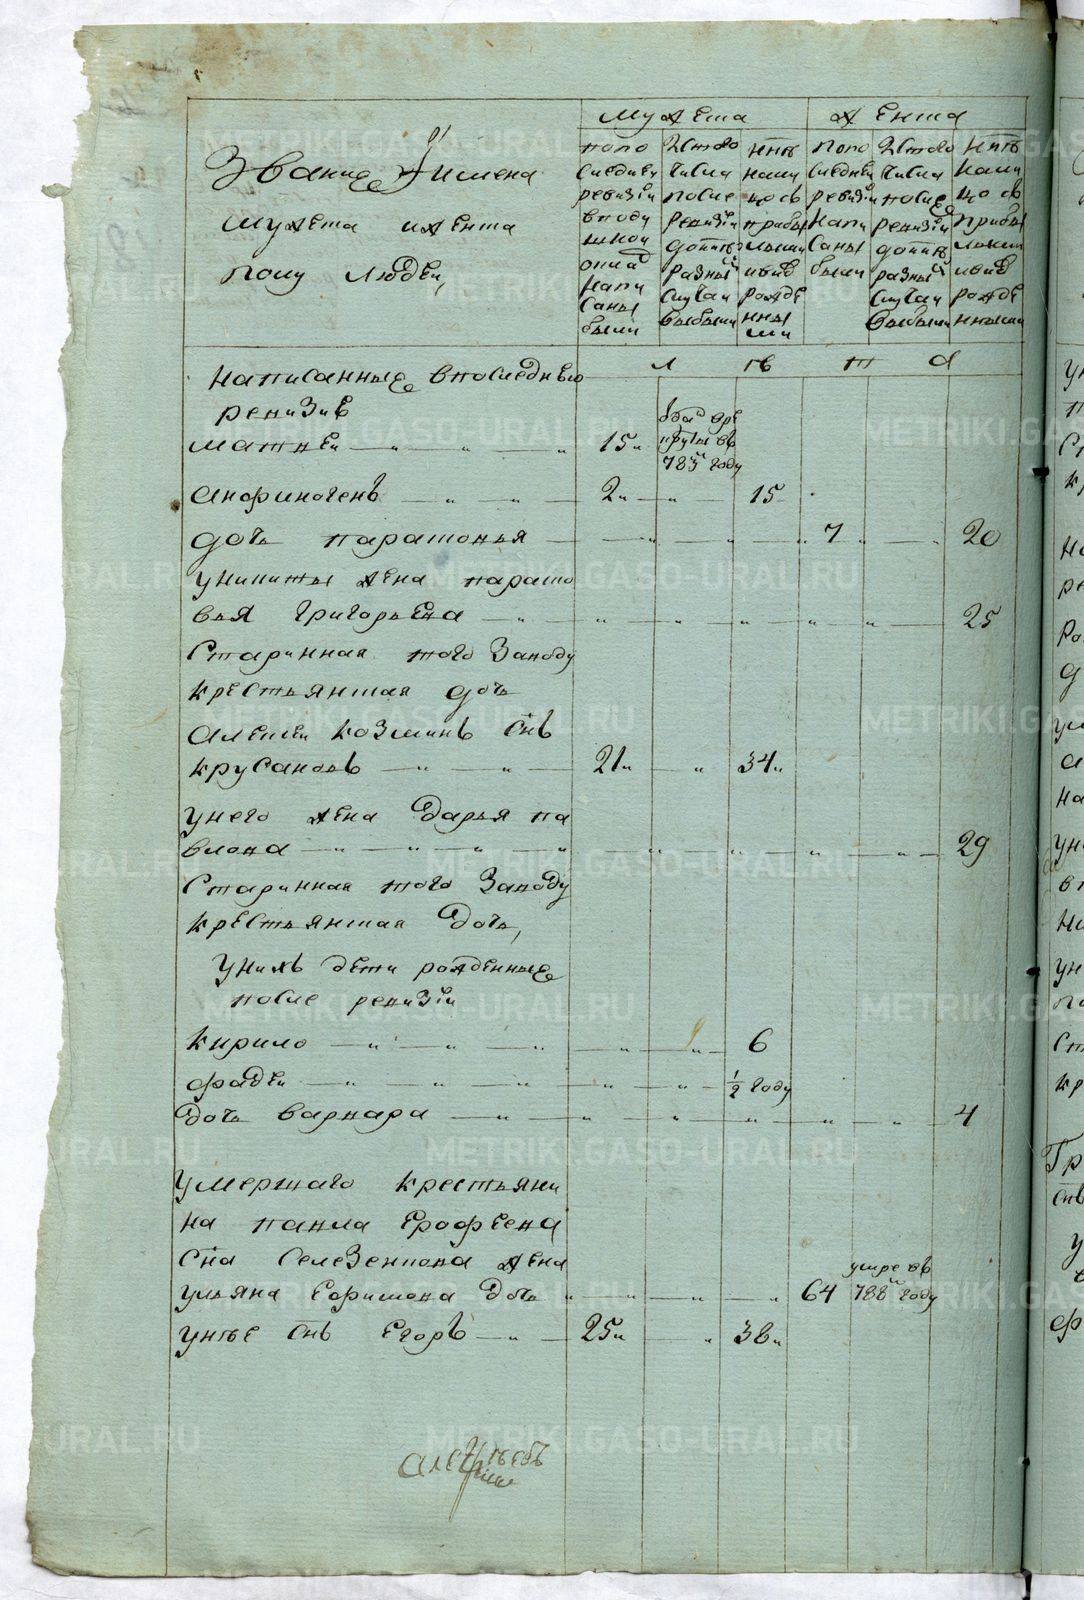 мужеска
женска
Звание и имена
мужеска и женска
полу людей,
по по
следней
ревизии
в поду
шной
оклад
напи
саны
были
Из того
числа
после
ревизии
до ныне
разны
случаи
выбыли
Ныне
нали
цо съ
прибы
лыми
и вновь
рожде
нны
ми
по по
следней
ревизии
напи
саны
были
Из того
числа
после
ревизии
до ныне
разны
случаи
выбыли
Ныне
нали
цо съ
прибы
лыми
и вновь
рожде
нными
л ѣ т а
Написанные в последнею
ревизию
матвей 15
рекруты въ
783 году
анфиногенъ 2 15
дочь парасковья 7 20
у никиты жена параско
вья григорьева 25
старинная того заводу
крестьянская дочь
алексей козминъ снъ
крусановъ 21 34
у него жена дарья па
влова 29
старинная того заводу
крестьянская дочь,
у нихъ дети рожденные
после ревизии
кирило 6
фадей ½ году
дочь варвара 4
умершаго крестьяни
на павла ерофеева
сна селезенкова жена
ульяна ефимова дочь 64 умре въ 788 году
у нѣе снъ егоръ 25 38